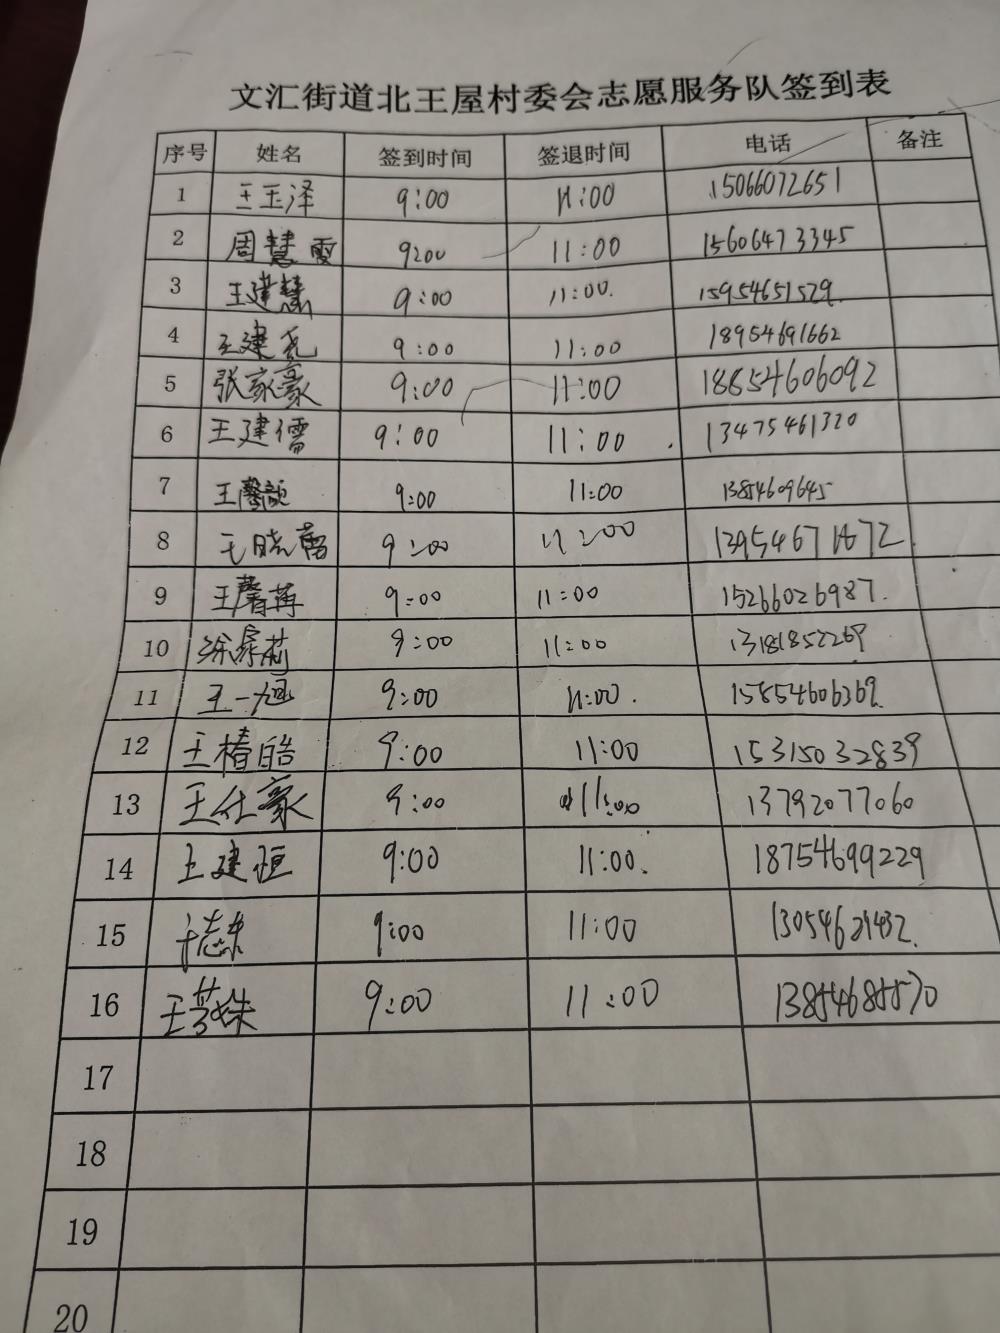 文汇街道北王屋村委会志愿服务队签到表
序号 姓名 签到时间 签退时间 电话 备注
1 王玉泽 9:00 11:00 15066072651
2 周慧雯 9:00 11:00 15606473345
3 王建慧 9:00 11:00. 15954651529.
4 王建尧 9:00 11:00 18954691662
5 张家豪 9:00 11:00 18854606092
6 王建儒 9:00 11:00 13475461320
7 9:00 11:00 13854609645
8 王晓茜 9:00 11:00
9 王馨苒 9:00 11:00 15266026987.
10 9:00 11:00 13181852269
11 王一旭 9:00 11:00. 15854606369.
12 王椿皓 9:00 11:00 15315032839
13 王仕豪 9:00 11:00 13792077060
14 王建恒 9:00 11:00. 18754699229
15 9:00 11:00 13054629432.
16 9:00 11:00
17
18
19
20